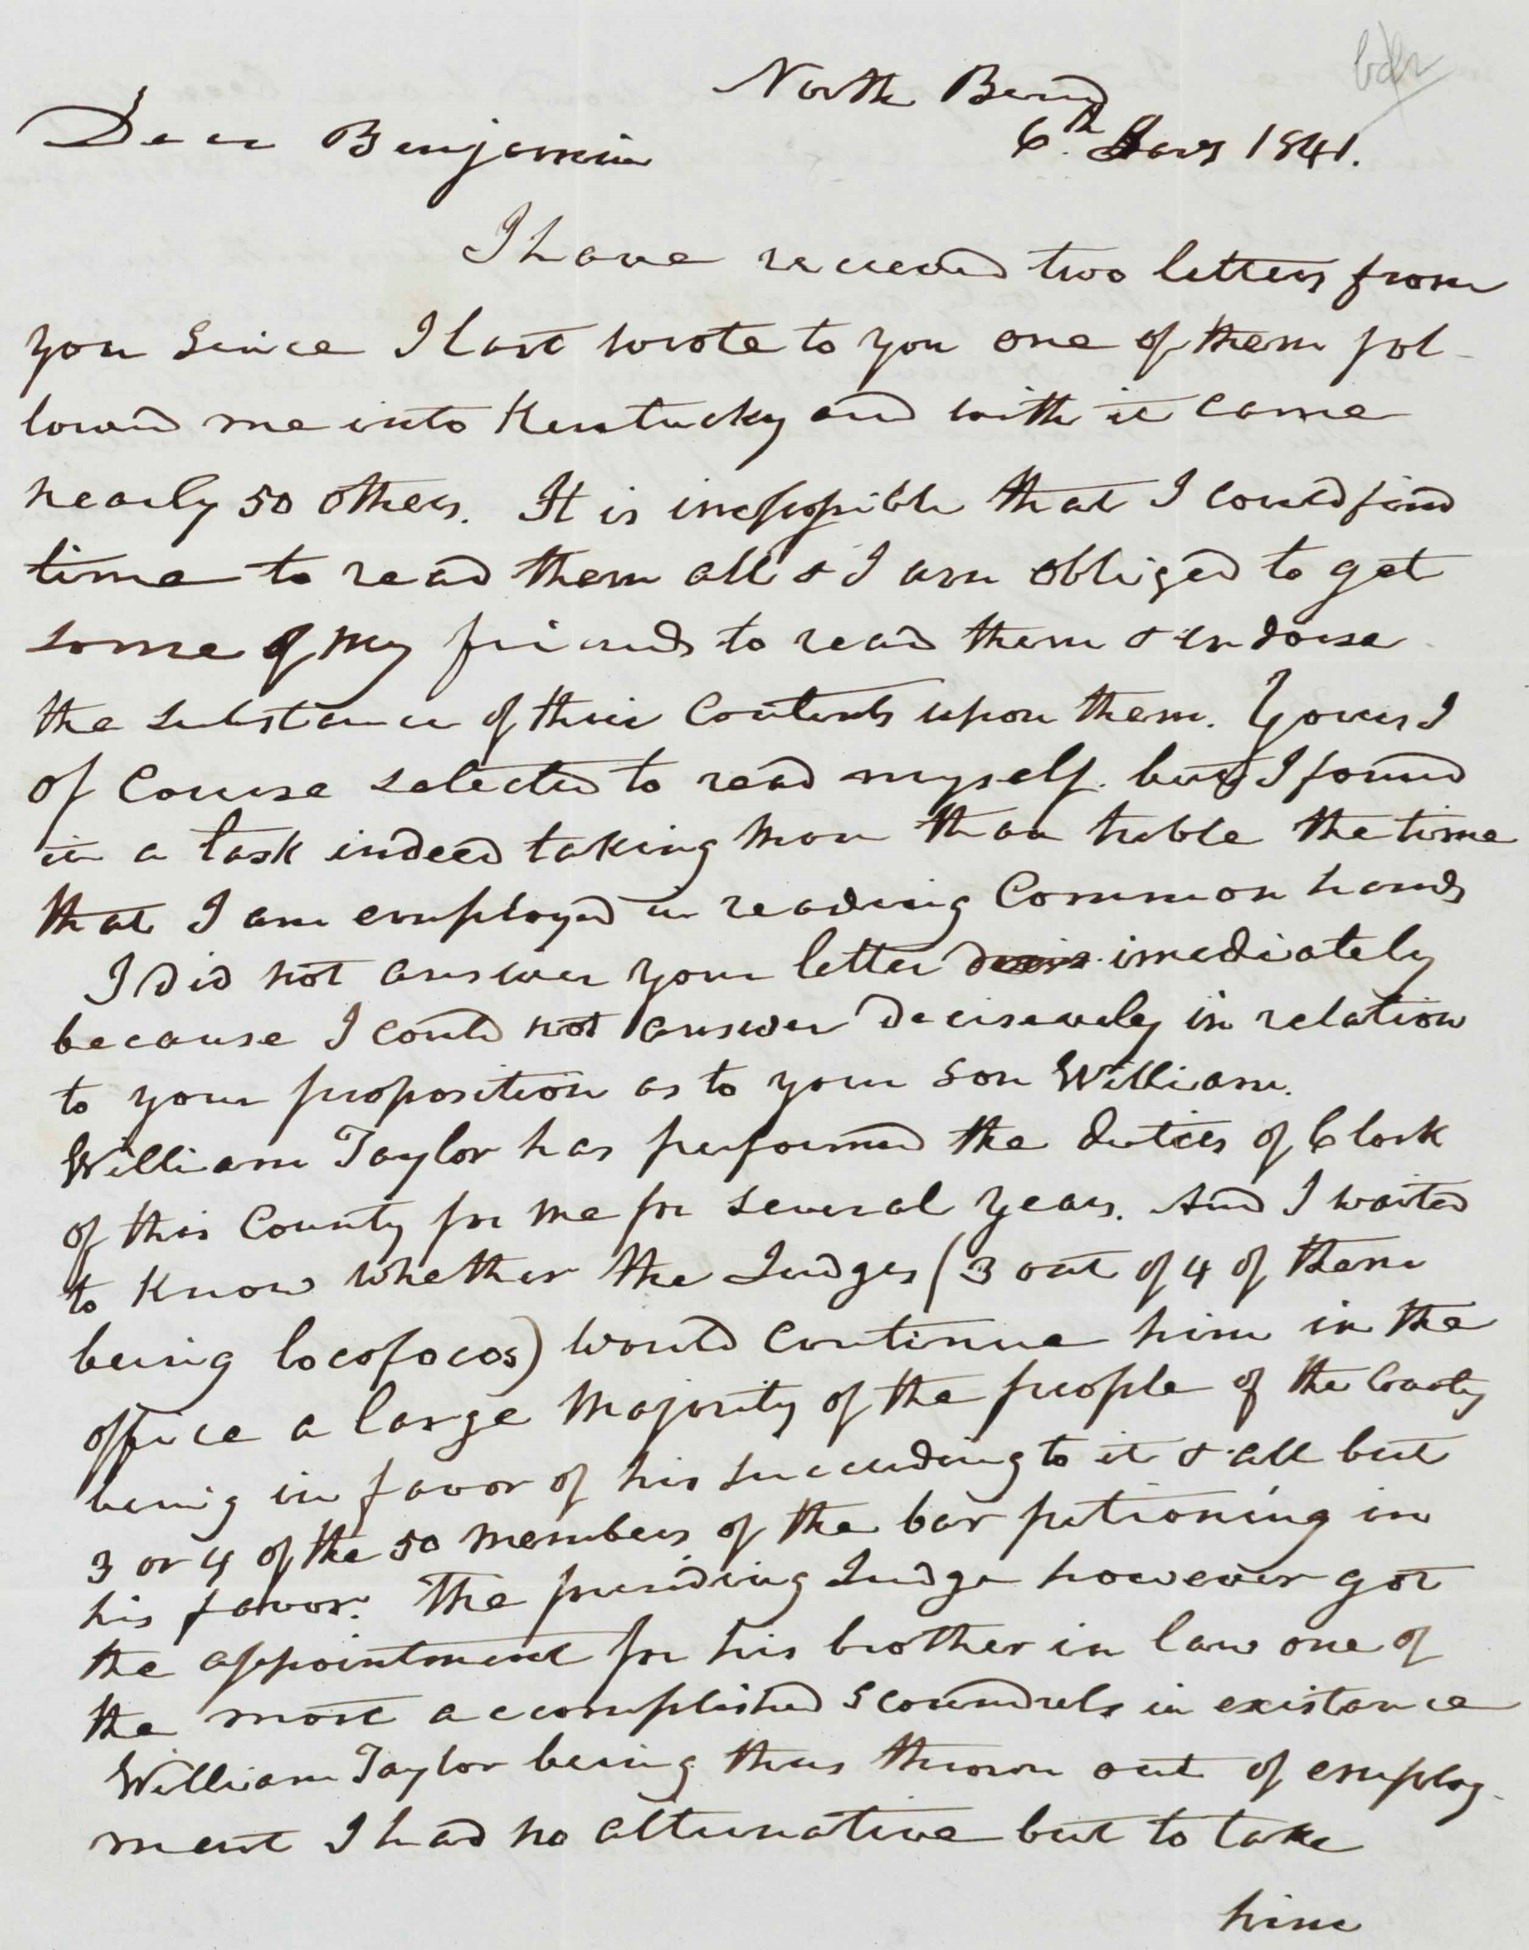 North Bend
6th Jany 1841.
Dear Benjamin
I have received two letters from
you since I last wrote to you one of them fol-
lowed me into Kentucky and with it came
nearly 50 others. It is impossible that I could find
time to read them all & I am obliged to get
some of my friends to read them & indorse
the substance of their Contents upon them. Yours I
of Course selected to read myself. but I found
it a task indeed taking more than treble the time
that I am employed in reading Common hands
I did not answer your letter imediately
because I could not answer decisevely in relation
to your proposition as to your son William.
William Taylor has performed the duties of Clerk
of this County for me for several years. And I waited
to know whether the Judges (3 out of 4 of them
being locofocos) would continue him in the
office a large Majority of the people of the County
being in favor of his succeeding to it & all but
3 or 4 of the 50 members of the bar petioning in
his favor. The presiding Judge however got
the appointment for his brother in law one of
the most accomplished scoundrels in existance
William Taylor being thus thrown out of employ-
ment I had no alternative but to take
him